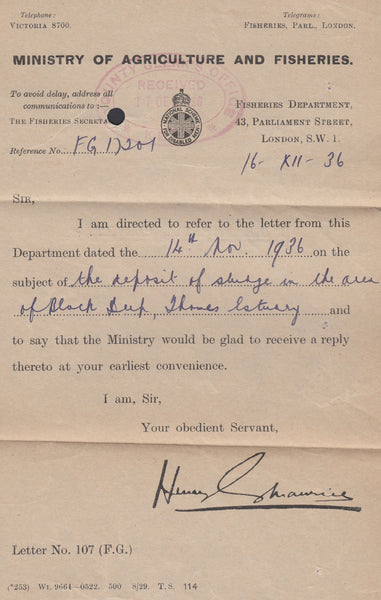 Telephone: Telegrams:
VICTORIA 8700. FISHERIES, PARL., LONDON.
MINISTRY OF AGRICULTURE AND FISHERIES.
COUNTY CLERK'S OFFICE
RECEIVED
17 DEC 1936
To avoid delay, address all
communications to :—
THE FISHERIES SECRETA
Reference No. FG 17201
NATIONAL SCHEME
FOR DISABLED MEN
FISHERIES DEPARTMENT,
43, PARLIAMENT STREET,
LONDON, S.W. 1.
16- XII - 36
SIR,
I am directed to refer to the letter from this
Department dated the 14th Nov. 1936 on the
subject of the deposit of sludge in the area
of Black Deep, Thames Estuary and
to say that the Ministry would be glad to receive a reply
thereto at your earliest convenience.
I am, Sir,
Your obedient Servant,
Henry G Maurice
Letter No. 107 (F.G.)
(*253) Wt. 9664—0522. 500 8/29. T.S. 114